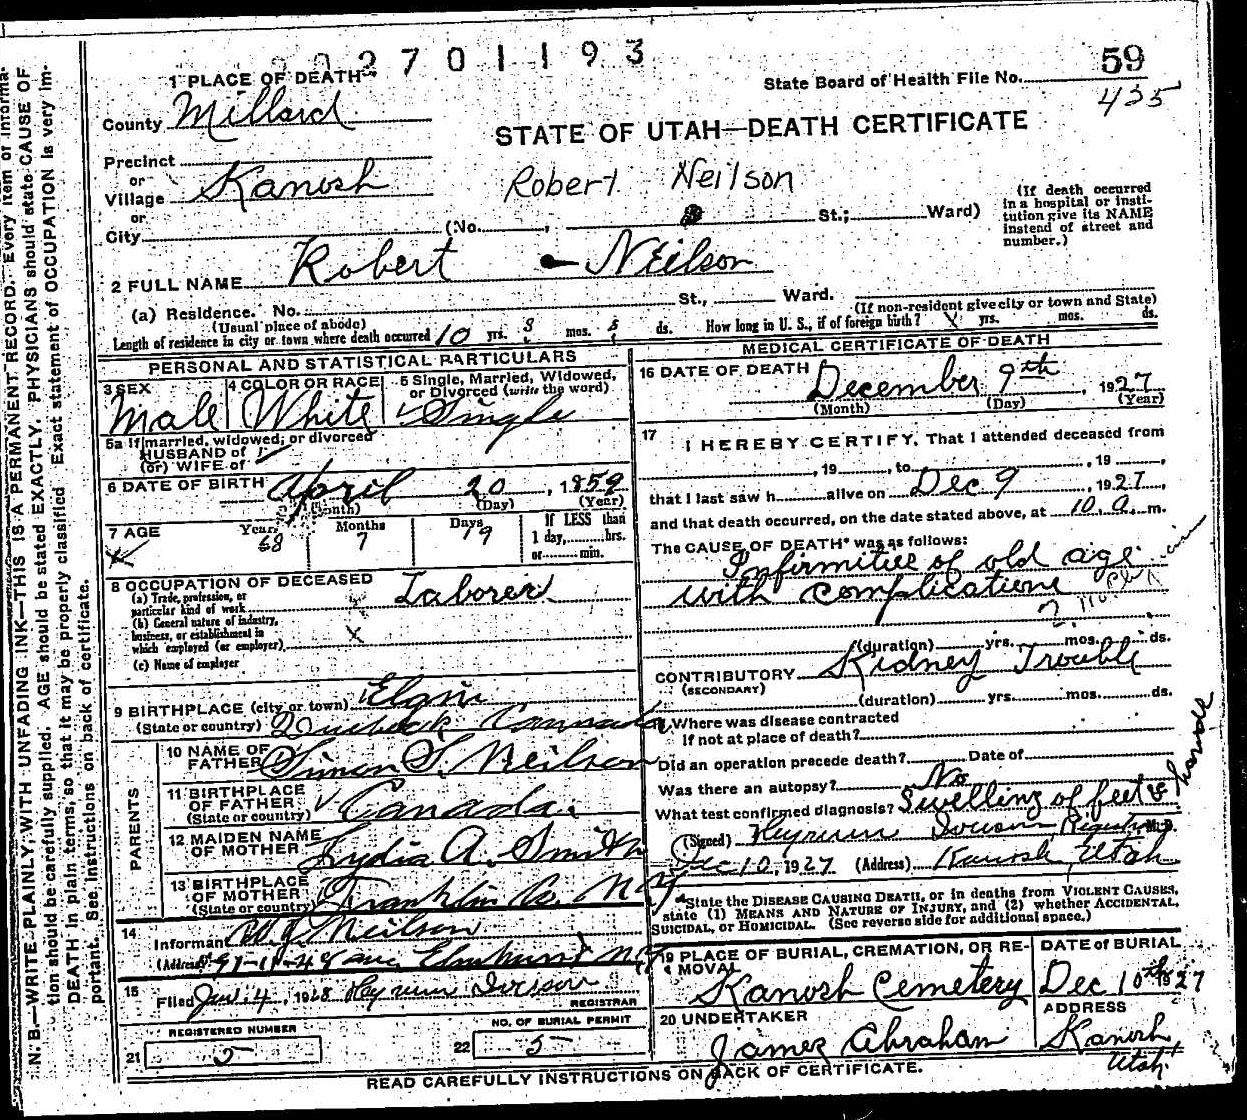 2701193
59
State Board of Health File No.
435
1 PLACE OF DEATH
County Millard
STATE OF UTAH—DEATH CERTIFICATE
Precinct
or
Village Kanosh
Robert Neilson
or
City (No. St.; Ward)
(If death occurred in a hospital or institution give its NAME instead of street and number.)
2 FULL NAME Robert Neilson
(a) Residence. No. St., Ward.
(Usual place of abode) (If non-resident give city or town and State)
Length of residence in city or town where death occurred 10 yrs. 8 mos. 5 ds. How long in U. S., if of foreign birth? yrs. mos. ds.
PERSONAL AND STATISTICAL PARTICULARS
3 SEX Male
4 COLOR OR RACE White
5 Single, Married, Widowed, or Divorced (write the word) Single
5a If married, widowed, or divorced
HUSBAND of
(or) WIFE of
6 DATE OF BIRTH April 20, 1859
(Month) (Day) (Year)
7 AGE Years 68 Months 7 Days 19
If LESS than 1 day, hrs. or min.
8 OCCUPATION OF DECEASED
(a) Trade, profession, or particular kind of work Laborer
(b) General nature of industry, business, or establishment in which employed (or employer)
(c) Name of employer
9 BIRTHPLACE (city or town) Elgin
(State or country) Quebeck Cannada
PARENTS
10 NAME OF FATHER Simon S. Neilson
11 BIRTHPLACE OF FATHER (State or country) Canada.
12 MAIDEN NAME OF MOTHER Lydia A. Smith
13 BIRTHPLACE OF MOTHER (State or country) Franklin Co. N Y
14 Informant W. J. Neilson
(Address) Elmhurst N.Y.
15 Filed Jan. 4, 1928 Heyrum Iverson
REGISTRAR
REGISTERED NUMBER
21 5
NO. OF BURIAL PERMIT
22 5
MEDICAL CERTIFICATE OF DEATH
16 DATE OF DEATH December 9th, 1927
(Month) (Day) (Year)
17 I HEREBY CERTIFY, That I attended deceased from
, 19 , to , 19 ,
that I last saw h alive on Dec 9, 1927,
and that death occurred, on the date stated above, at 10. a. m.
The CAUSE OF DEATH* was as follows:
Infirmities of old age
with complications
no physician
(duration) yrs. 2 mos. ds.
CONTRIBUTORY Kidney Trouble
(SECONDARY)
(duration) yrs. mos. ds.
Where was disease contracted
If not at place of death?
Did an operation precede death? Date of
Was there an autopsy? No
What test confirmed diagnosis? Swelling of feet & hands
(Signed) Heyrum Iverson Registrar M. D.
Dec 10, 1927 (Address) Kanosh, Utah
*State the DISEASE CAUSING DEATH, or in deaths from VIOLENT CAUSES, state (1) MEANS AND NATURE OF INJURY, and (2) whether ACCIDENTAL, SUICIDAL, or HOMICIDAL. (See reverse side for additional space.)
19 PLACE OF BURIAL, CREMATION, OR REMOVAL Kanosh Cemetery
DATE of BURIAL Dec 10th 1927
20 UNDERTAKER James Abraham
ADDRESS Kanosh, Utah
READ CAREFULLY INSTRUCTIONS ON BACK OF CERTIFICATE.
N. B.—WRITE PLAINLY, WITH UNFADING INK—THIS IS A PERMANENT RECORD. Every item of informa-
tion should be carefully supplied. AGE should be stated EXACTLY. PHYSICIANS should state CAUSE OF
DEATH in plain terms, so that it may be properly classified. Exact statement of OCCUPATION is very im-
portant. See instructions on back of certificate.